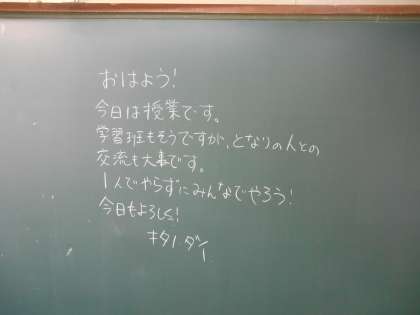 おはよう!
今日は授業です。
学習班もそうですが、となりの人との
交流も大事です。
1人でやらずにみんなでやろう!
今日もよろしく!
キタノダイ